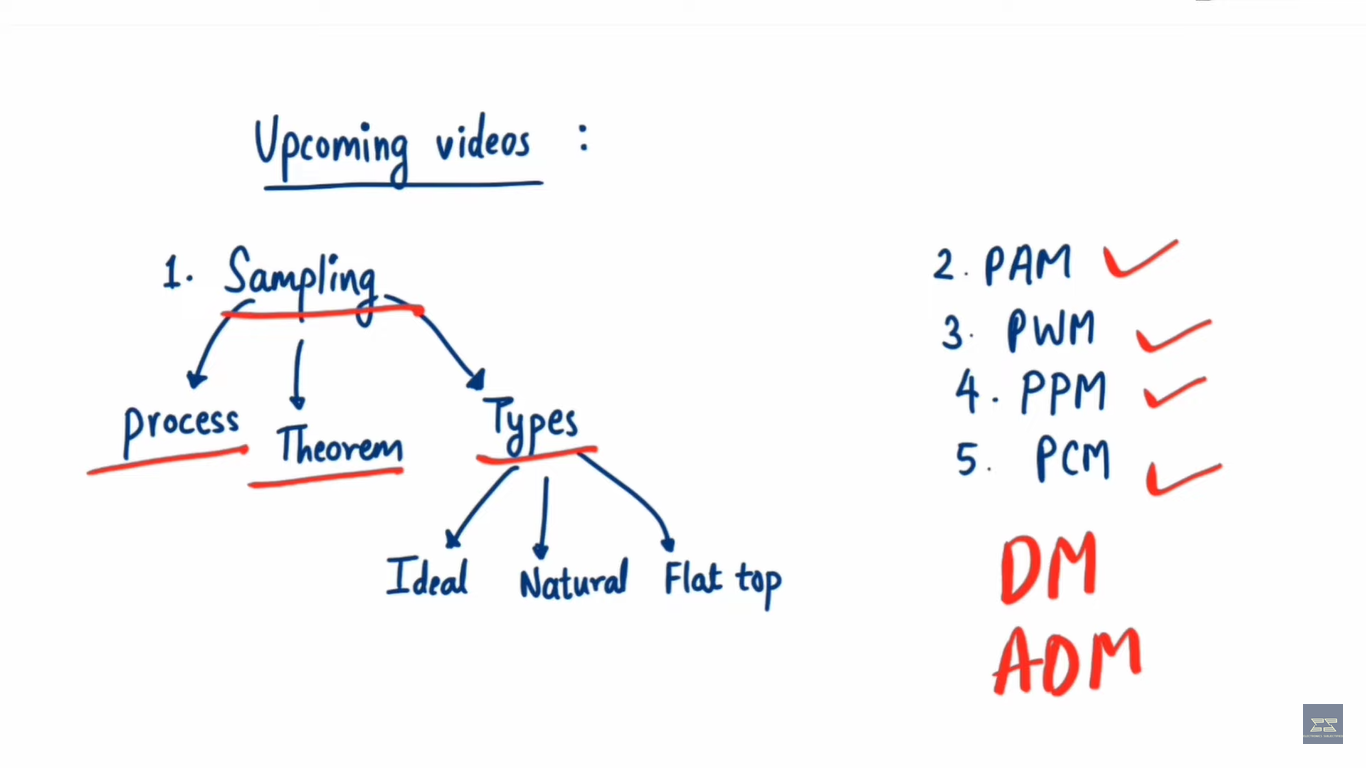 Upcoming videos :
1. Sampling
Process
Theorem
Types
Ideal
Natural
Flat top
2. PAM
3. PWM
4. PPM
5. PCM
DM
ADM